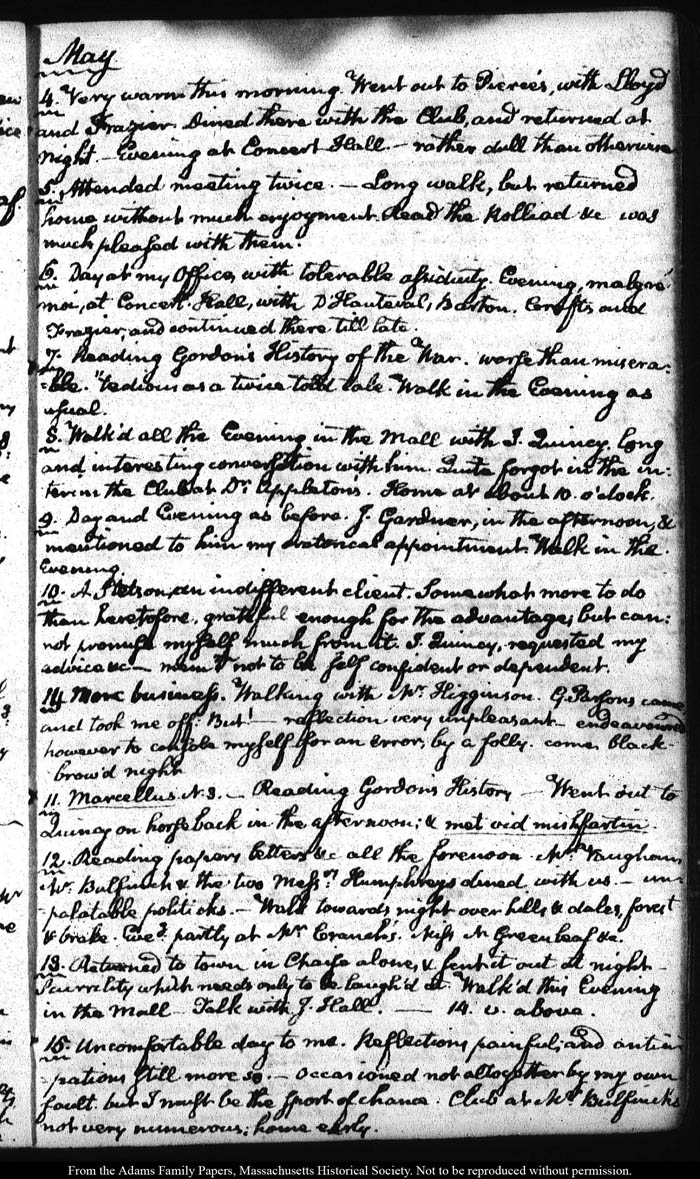 May
4. Very warm this morning. Went out to Pierce's, with Lloyd
and Frazier. Dined there with the Club, and returned at
night. Evening at Concert Hall. — rather dull than otherwise
5. Attended meeting twice. — Long walk, but returned
home without much enjoyment. Read the Rolliad &c was
much pleased with them.
6. Day at my Office, with tolerable assiduity. Evening, malgré
moi, at Concert Hall, with D'Hauteval, Barton, Crofts and
Frazier, and continued there till late.
7. Reading Gordon's History of the War. worse than misera:
ble. "Tedious as a twice told tale" Walk in the Evening as
usual.
8. Walk'd all the Evening in the Mall with J. Quincy. long
and interesting conversation with him. Quite forgot in the in:
terim the Club at Dr. Appleton's. Home at about 10. o'clock.
9. Day and Evening as before. J. Gardner, in the afternoon, &
mentioned to him my oratorical appointment. Walk in the
Evening.
10. A Stetson, an indifferent client. Somewhat more to do
than heretofore. grateful enough for the advantage; but can:
not promise myself much from it. J. Quincy, requested my
advice &c — mem: not to be self confident or dependent.
14 More business. Walking with Mr. Higginson. G. Parsons came
and took me off. But! — reflection very unpleasant — endeavoured
however to console myself for an error, by a folly. come, black-
brow'd night
11. Marcellus N. 3. — Reading Gordon's History — Went out to
Quincy on horse back in the afternoon; & met
12. Reading papers letters &c all the forenoon. Mr. Vaughan
Mr. Bulfinch & the two Messrs. Humphreys dined with us. — un-
palatable politicks. — Walk towards night over hills & dales, forest
& brake. Eveg. partly at Mr Cranch's. Miss N Greenleaf &c.
13. Returned to town in Chaise alone, & sent it out at night —
Scurrility which needs only to be laugh'd at. Walk'd this Evening
in the Mall — Talk with J. Hall. — 14. v. above.
15. Uncomfortable day to me. Reflections painful, and antici
pations still more so. — occasioned not altogether by my own
fault. but I must be the sport of chance. Club at Mr. Bulfinch's
not very numerous; home early.
From the Adams Family Papers, Massachusetts Historical Society. Not to be reproduced without permission.